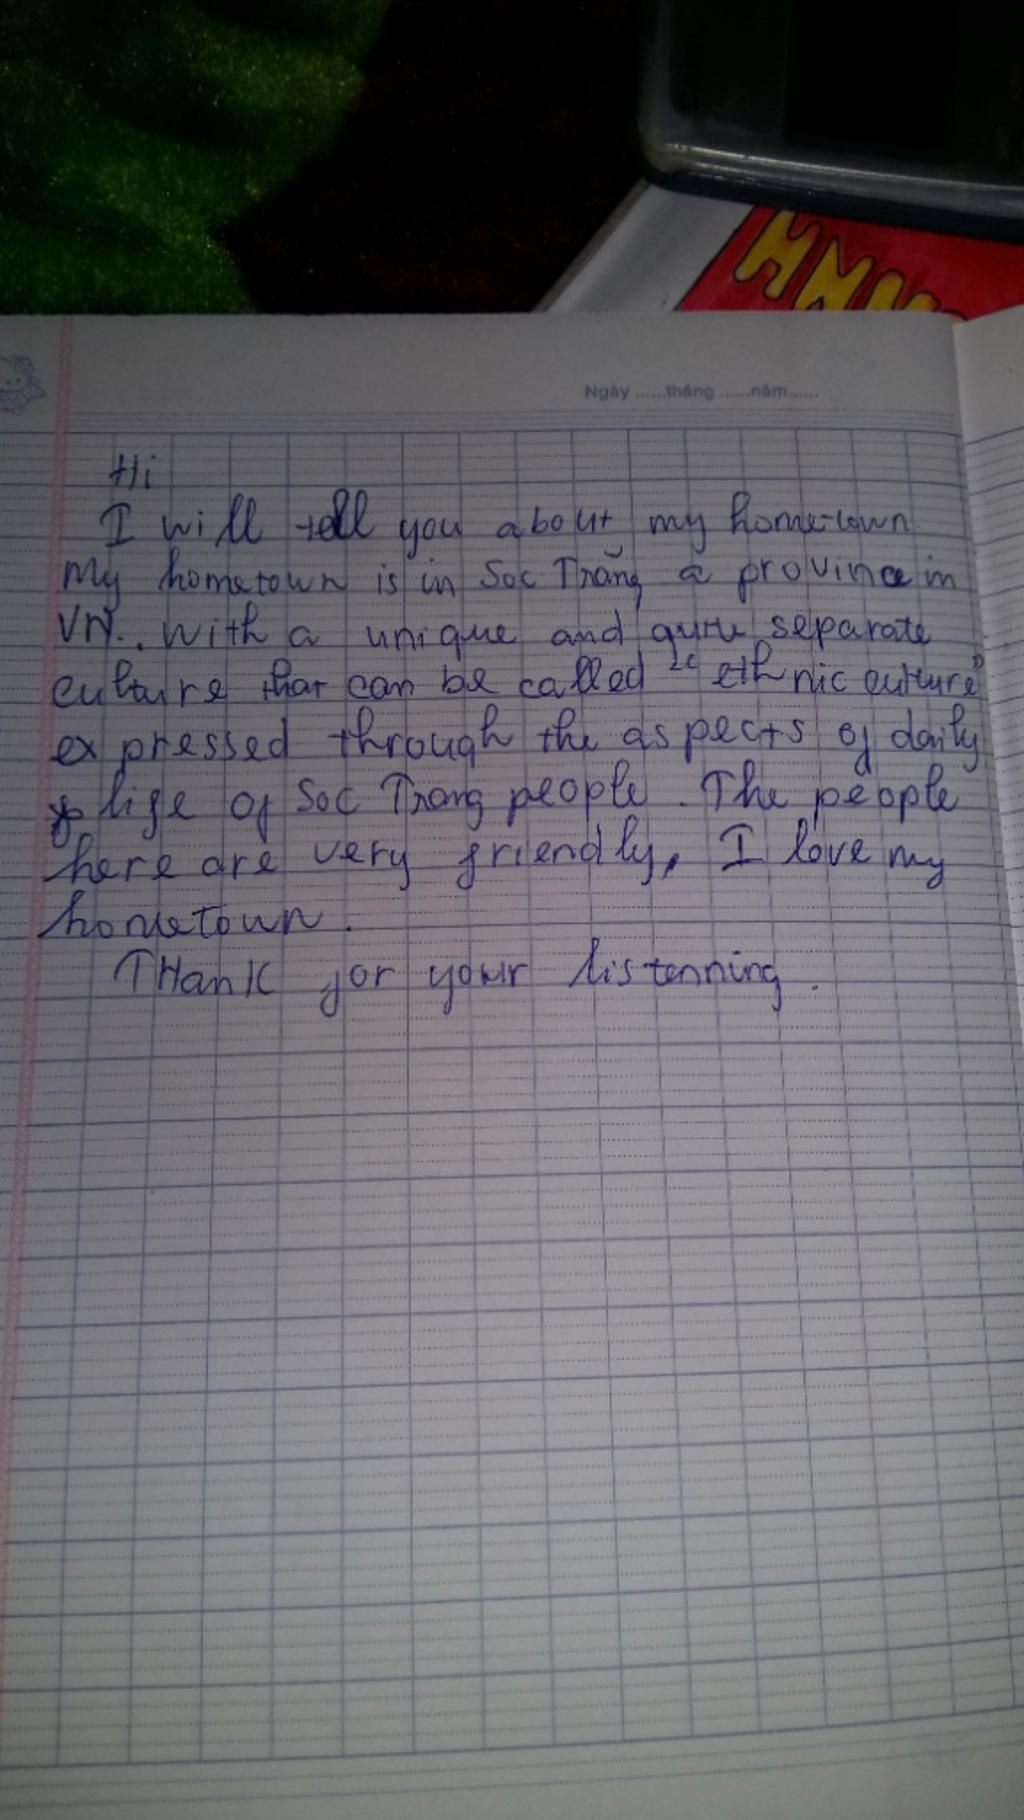 HNH
Ngày ......tháng ......năm......
Hi
I will tell you about my hometown
My hometown is in Soc Trăng a province in
VN. With a unique and quite separate
culture that can be called "ethnic culture"
expressed through the aspects of daily
life of Soc Trang people. The people
here are very friendly, I love my
hometown.
THank for your listenning.